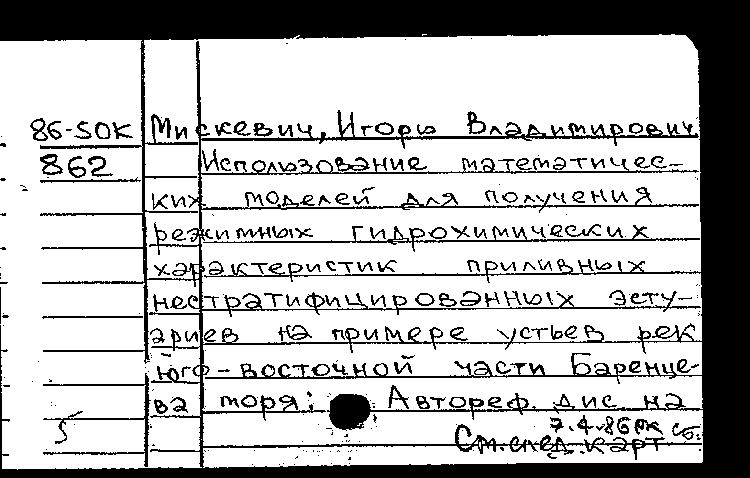 86-50К Мискевич, Игорь Владимирович
862 Использование математичес-
ких моделей для получения
режимных гидрохимических
характеристик приливных
нестратифицированных эсту-
ариев на примере устьев рек
юго-восточной части Баренце-
ва моря: Автореф. дис на
7.4-86
5 См.след.карт